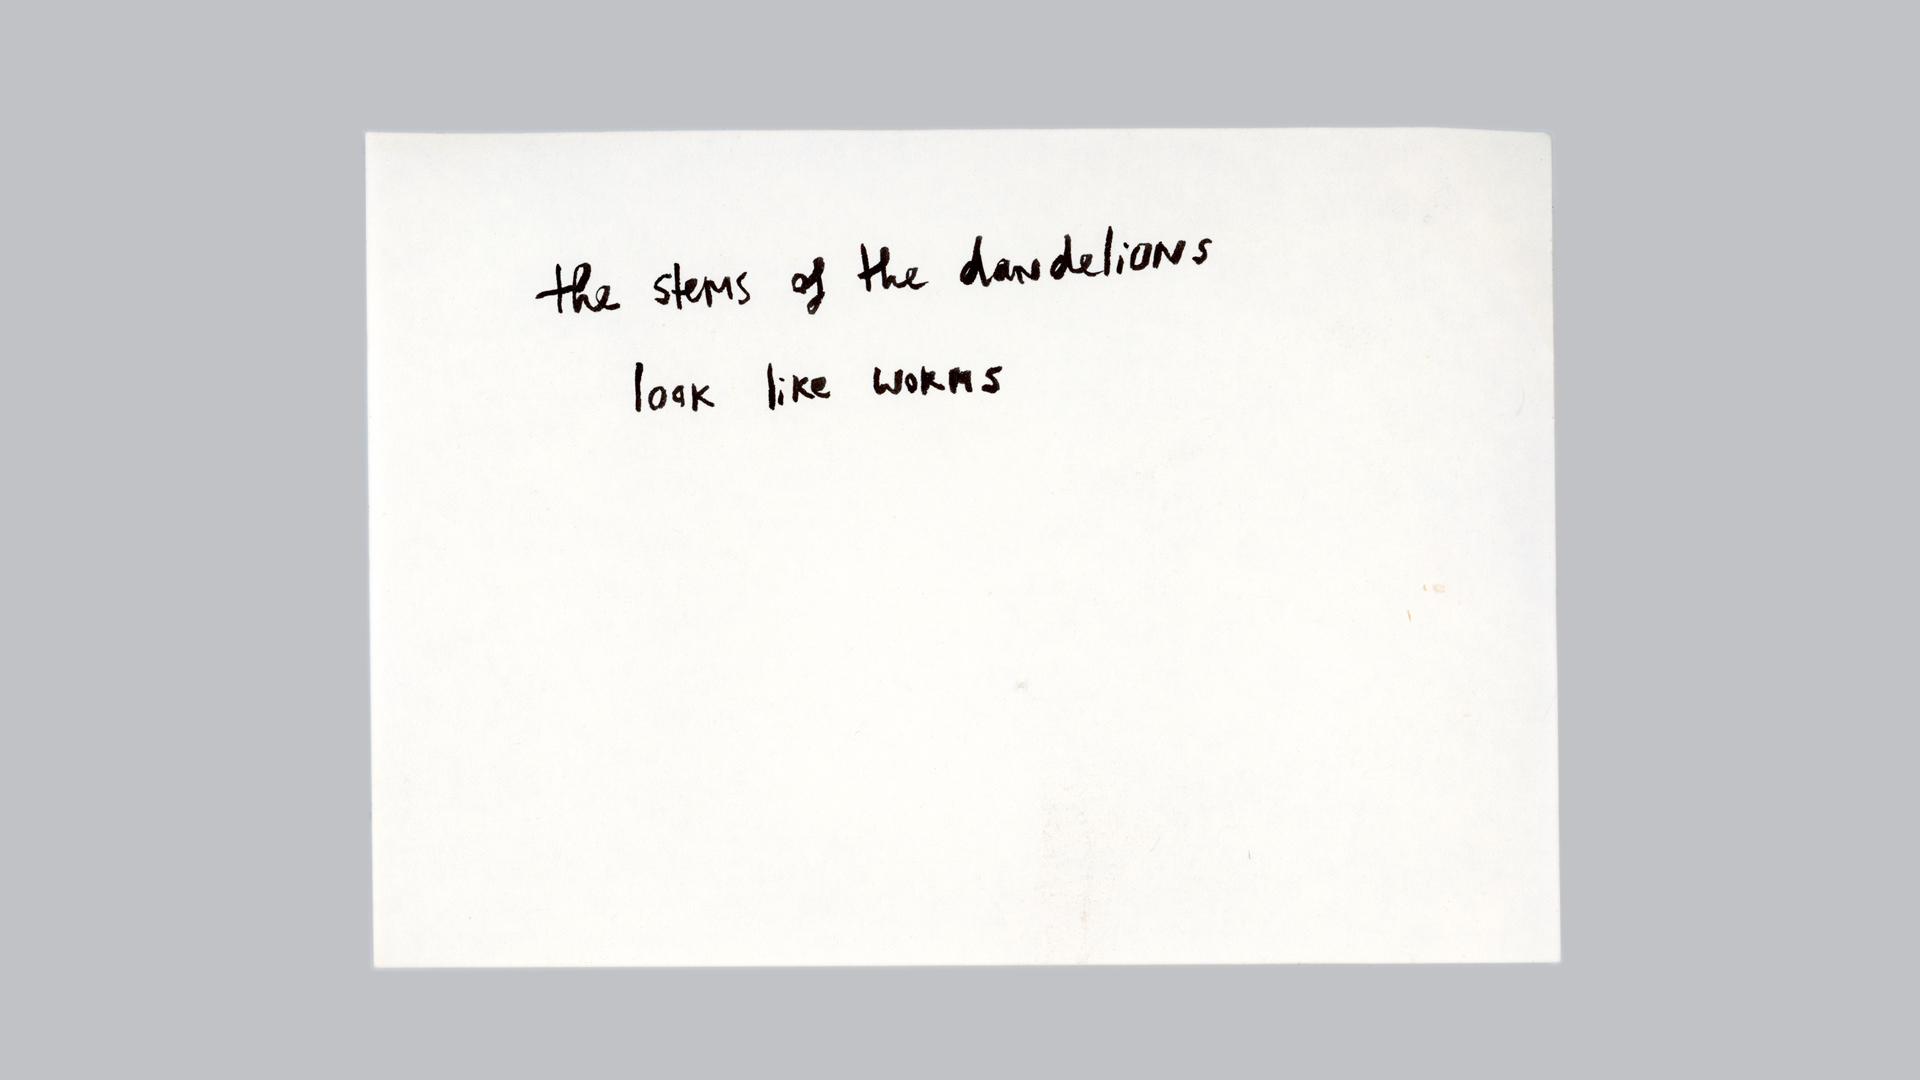 the stems of the dandelions
look like worms